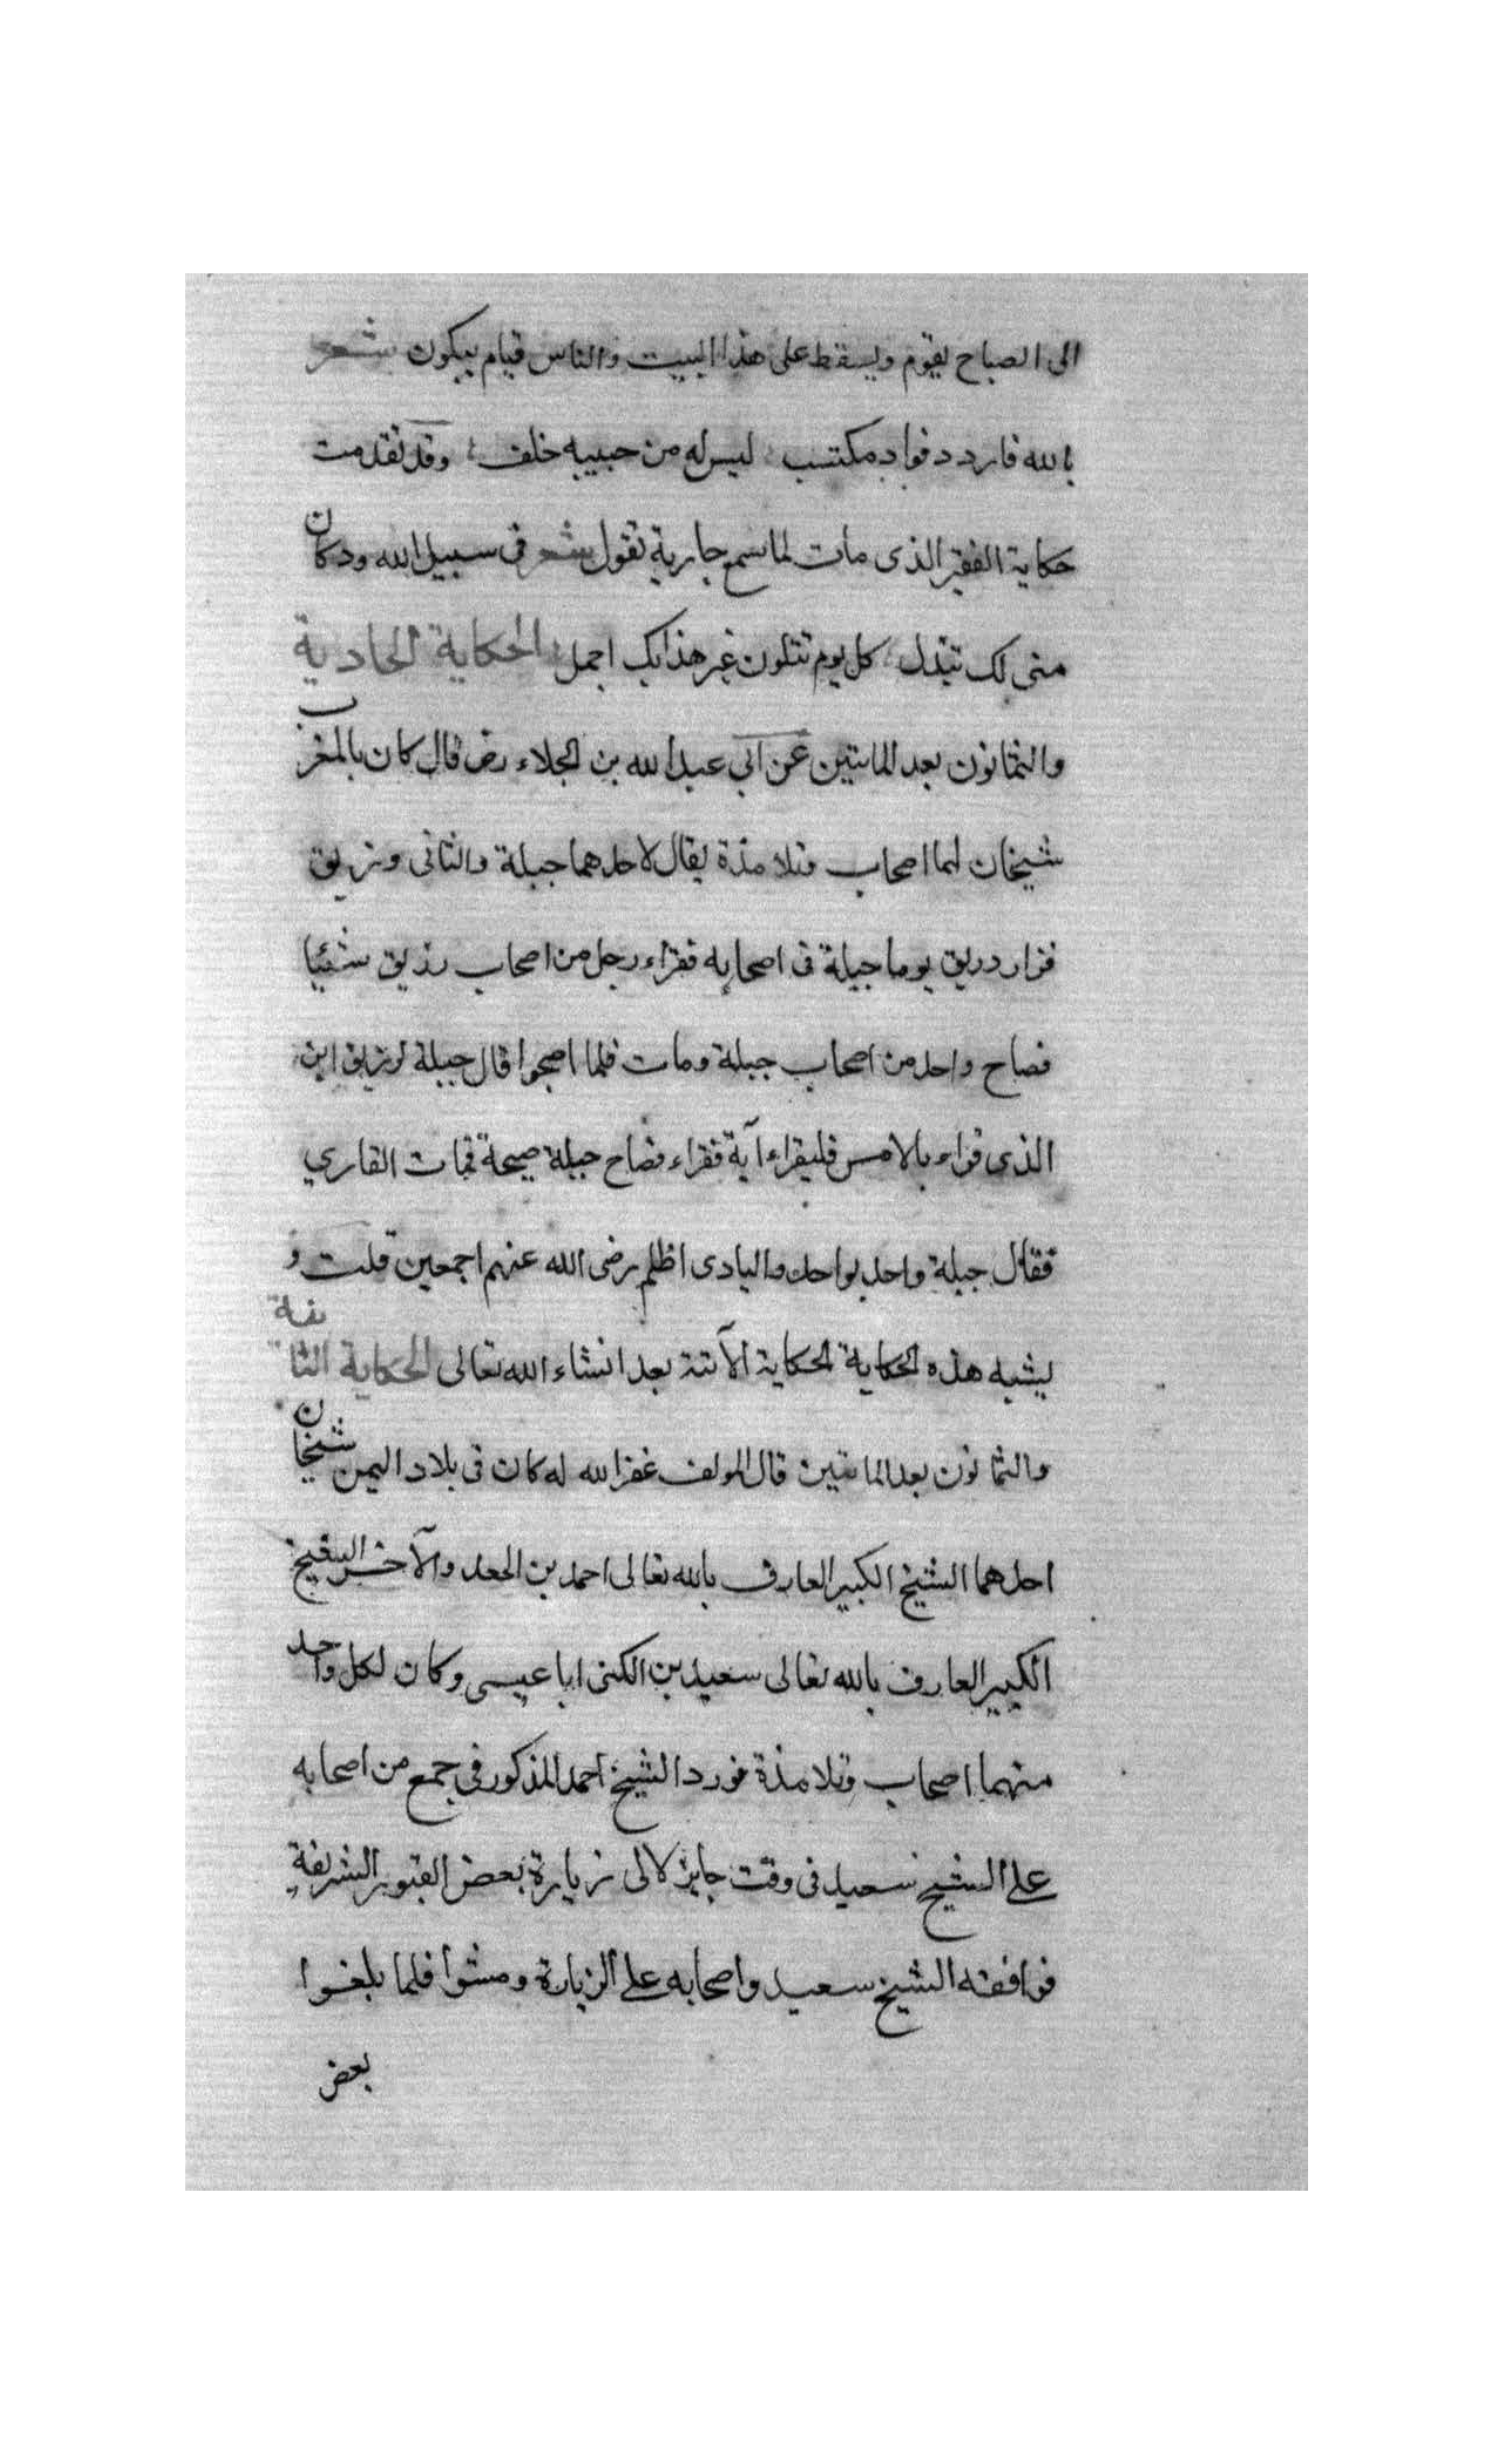 الى الصباح يقوم ويسقط على هذا البيت والناس قيام يبكون شعر
بالله فاردد فواد مكتسب ليس له من حبيبه خلف وقد تقدمت
حكاية الفقير الذى مات لما سمع جارية تقول شعر فى سبيل الله ود كان
منى لك تبذل كل يوم تتلون غير هذا بك اجمل الحكاية الحادية
والثمانون بعد المايتين عن ابي عبد الله بن الجلاء رض قال كان بالمغرب
شيخان لهما اصحاب وتلامذة يقال لاحدهما جبلة والثانى وزريق
فزار دريق يوما جبلة فى اصحابه فقراء رجل من اصحاب رذيق شيئا
فصاح واحد من اصحاب جبلة ومات فلما اصبحوا قال جبلة لزريق اين
الذى قراء بالامس فليقراء آية فقراء فصاح جبلة صيحة فمات القاري
فقال جبلة واحد بواحد والبادى اظلم رضى الله عنهم اجمعين قلت و
يشبه هذه الحكاية الحكاية الآتية بعد انشاء الله تعالى الحكاية الثانية
والثمانون بعد المايتين قال المولف غفر الله له كان فى بلاد اليمن شيخان
احدهما الشيخ الكبير العارف بالله تعالى احمد بن الجعد والآخر الشيخ
الكبير العارف بالله تعالى سعيد بن الكنى ابا عيسى وكان لكل واحد
منهما اصحاب وتلامذة فورد الشيخ احمد المذكور فى جمع من اصحابه
على الشيخ سعيد فى وقت جايز لالى زيارة بعض القبور الشريفة
فوافقه الشيخ سعيد واصحابه على الزيارة ومشوا فلما بلغوا
بعض